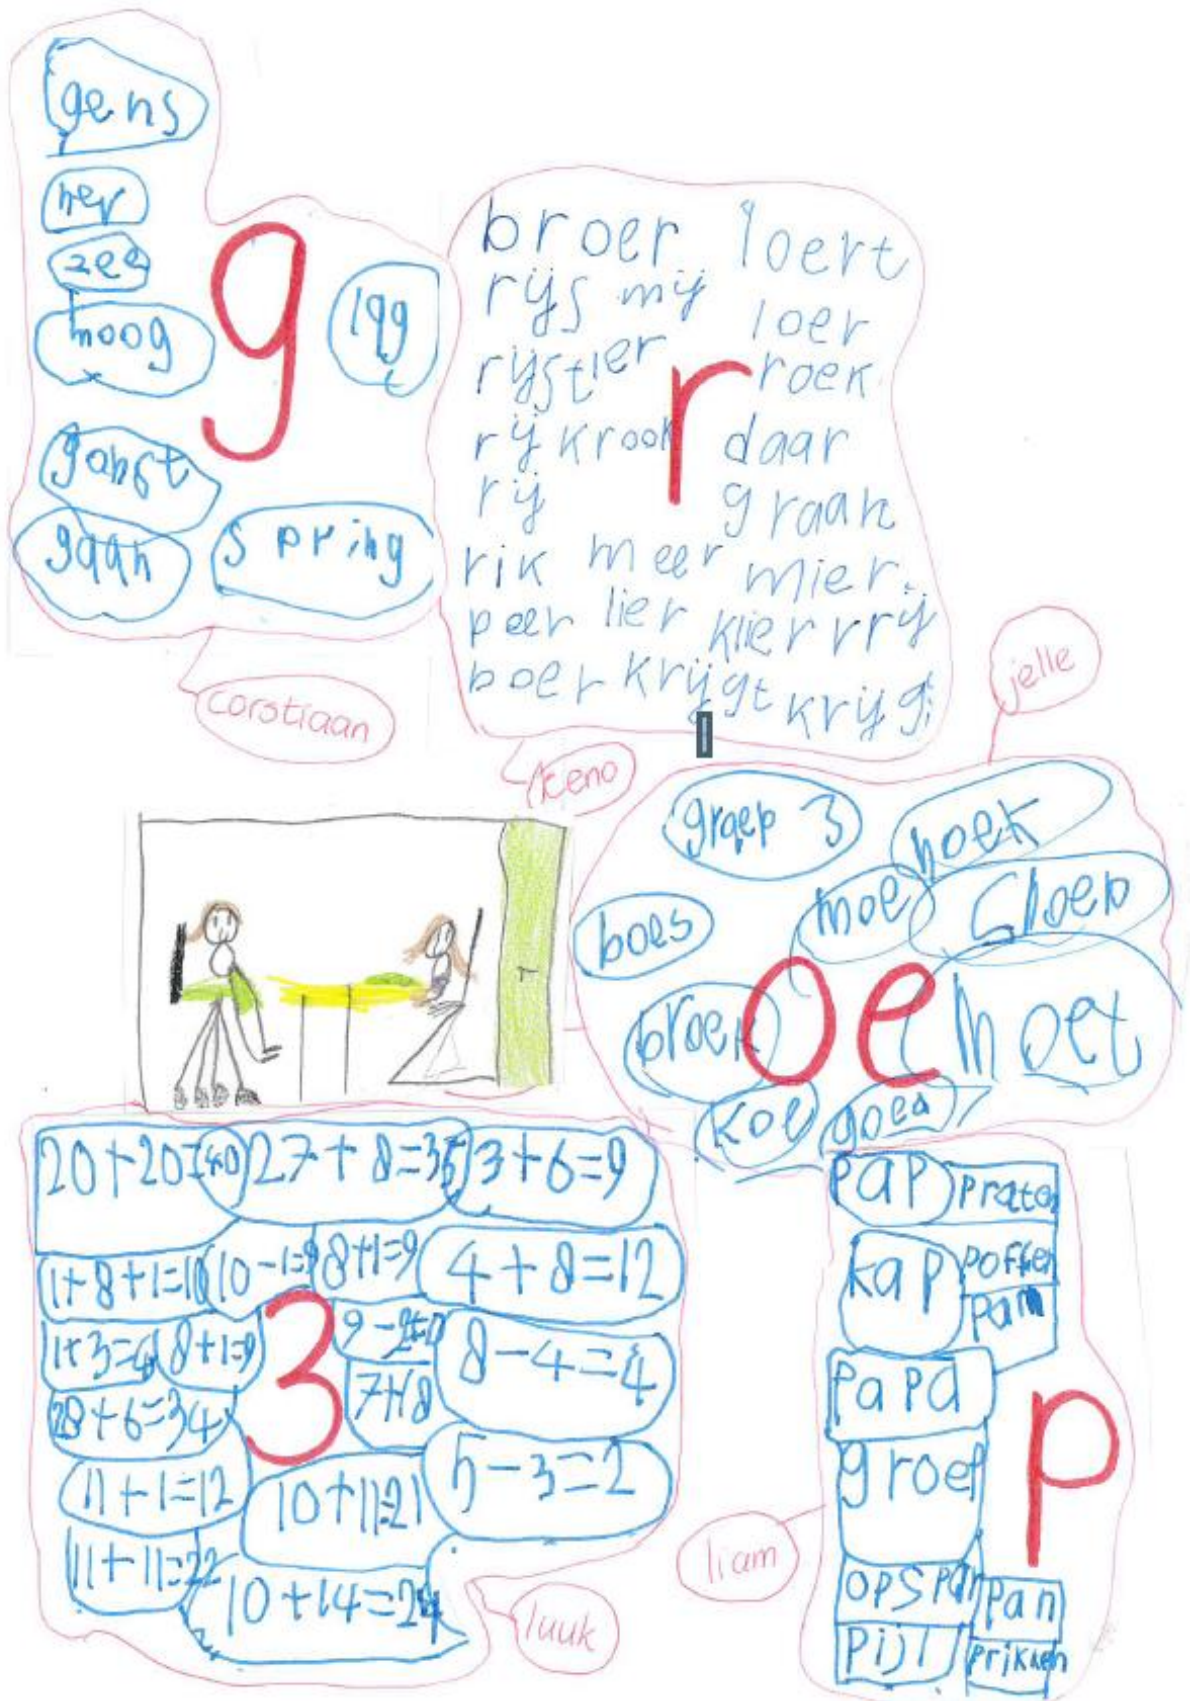 gens
her
zee
hoog
g
lgg
ganst
gaan
spring
corstiaan
broer loert
rijs mij
loer
rijstier
r
roek
rij krook daar
rij graan
rik meer mier
peer lier klier rrij
boer krijgt krijgt
keno
jelle
groep 3
hoek
moe
sloep
boes
oe
broek
moet
koe
goed
20+20=40
27+8=35
3+6=9
1+8+1=10
10-1=9
8+1=9
4+8=12
1+3=4
8+1=9
3
8-4=4
7+18
28+6=34
11+1=12
10+11=21
5-3=2
11+11=22
10+14=24
luuk
pap
praten
kap
poffen
pam
papa
p
groep
opspan
pan
pijl
prikken
liam